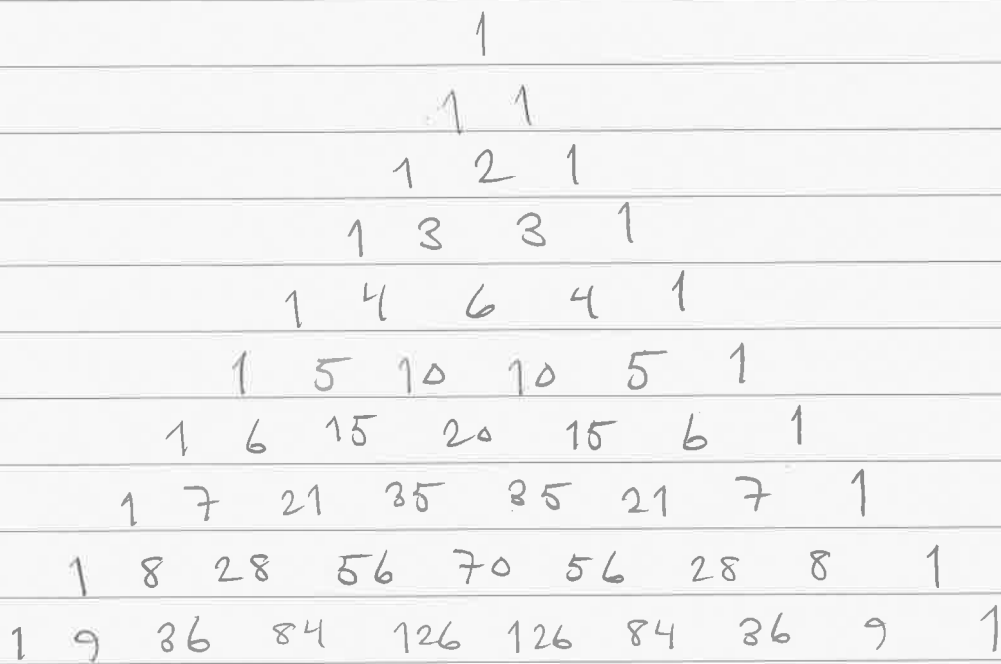 1
1 1
1 2 1
1 3 3 1
1 4 6 4 1
1 5 10 10 5 1
1 6 15 20 15 6 1
1 7 21 35 35 21 7 1
1 8 28 56 70 56 28 8 1
1 9 36 84 126 126 84 36 9 1